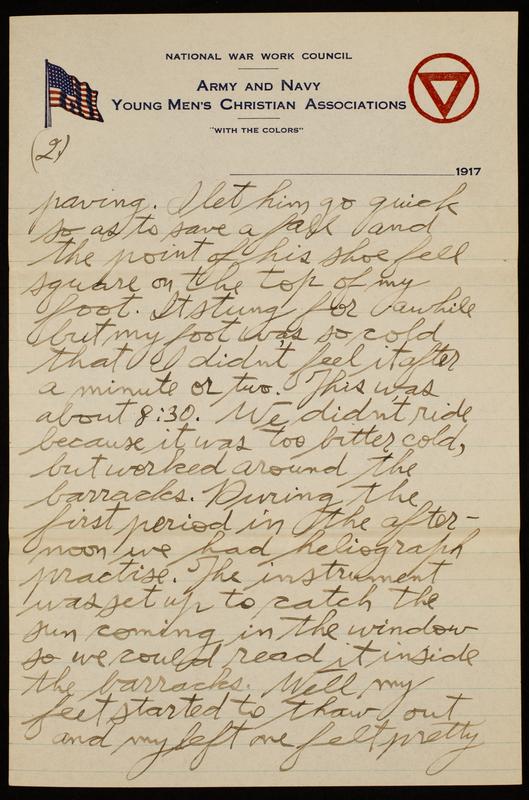 NATIONAL WAR WORK COUNCIL
ARMY AND NAVY
YOUNG MEN'S CHRISTIAN ASSOCIATIONS
"WITH THE COLORS"
(2)
1917
paving. I let him go quick
so as to save a fall and
the point of his shoe fell
square on the top of my
foot. It stung for awhile
but my foot was so cold
that I didn't feel it after
a minute or two. This was
about 8:30. We didn't ride
because it was too bitter cold,
but worked around the
barracks. During the
first period in the after-
noon we had heliograph
practise. The instrument
was set up to catch the
sun coming in the window
so we could read it inside
the barracks. Well my
feet started to thaw out
and my left one felt pretty